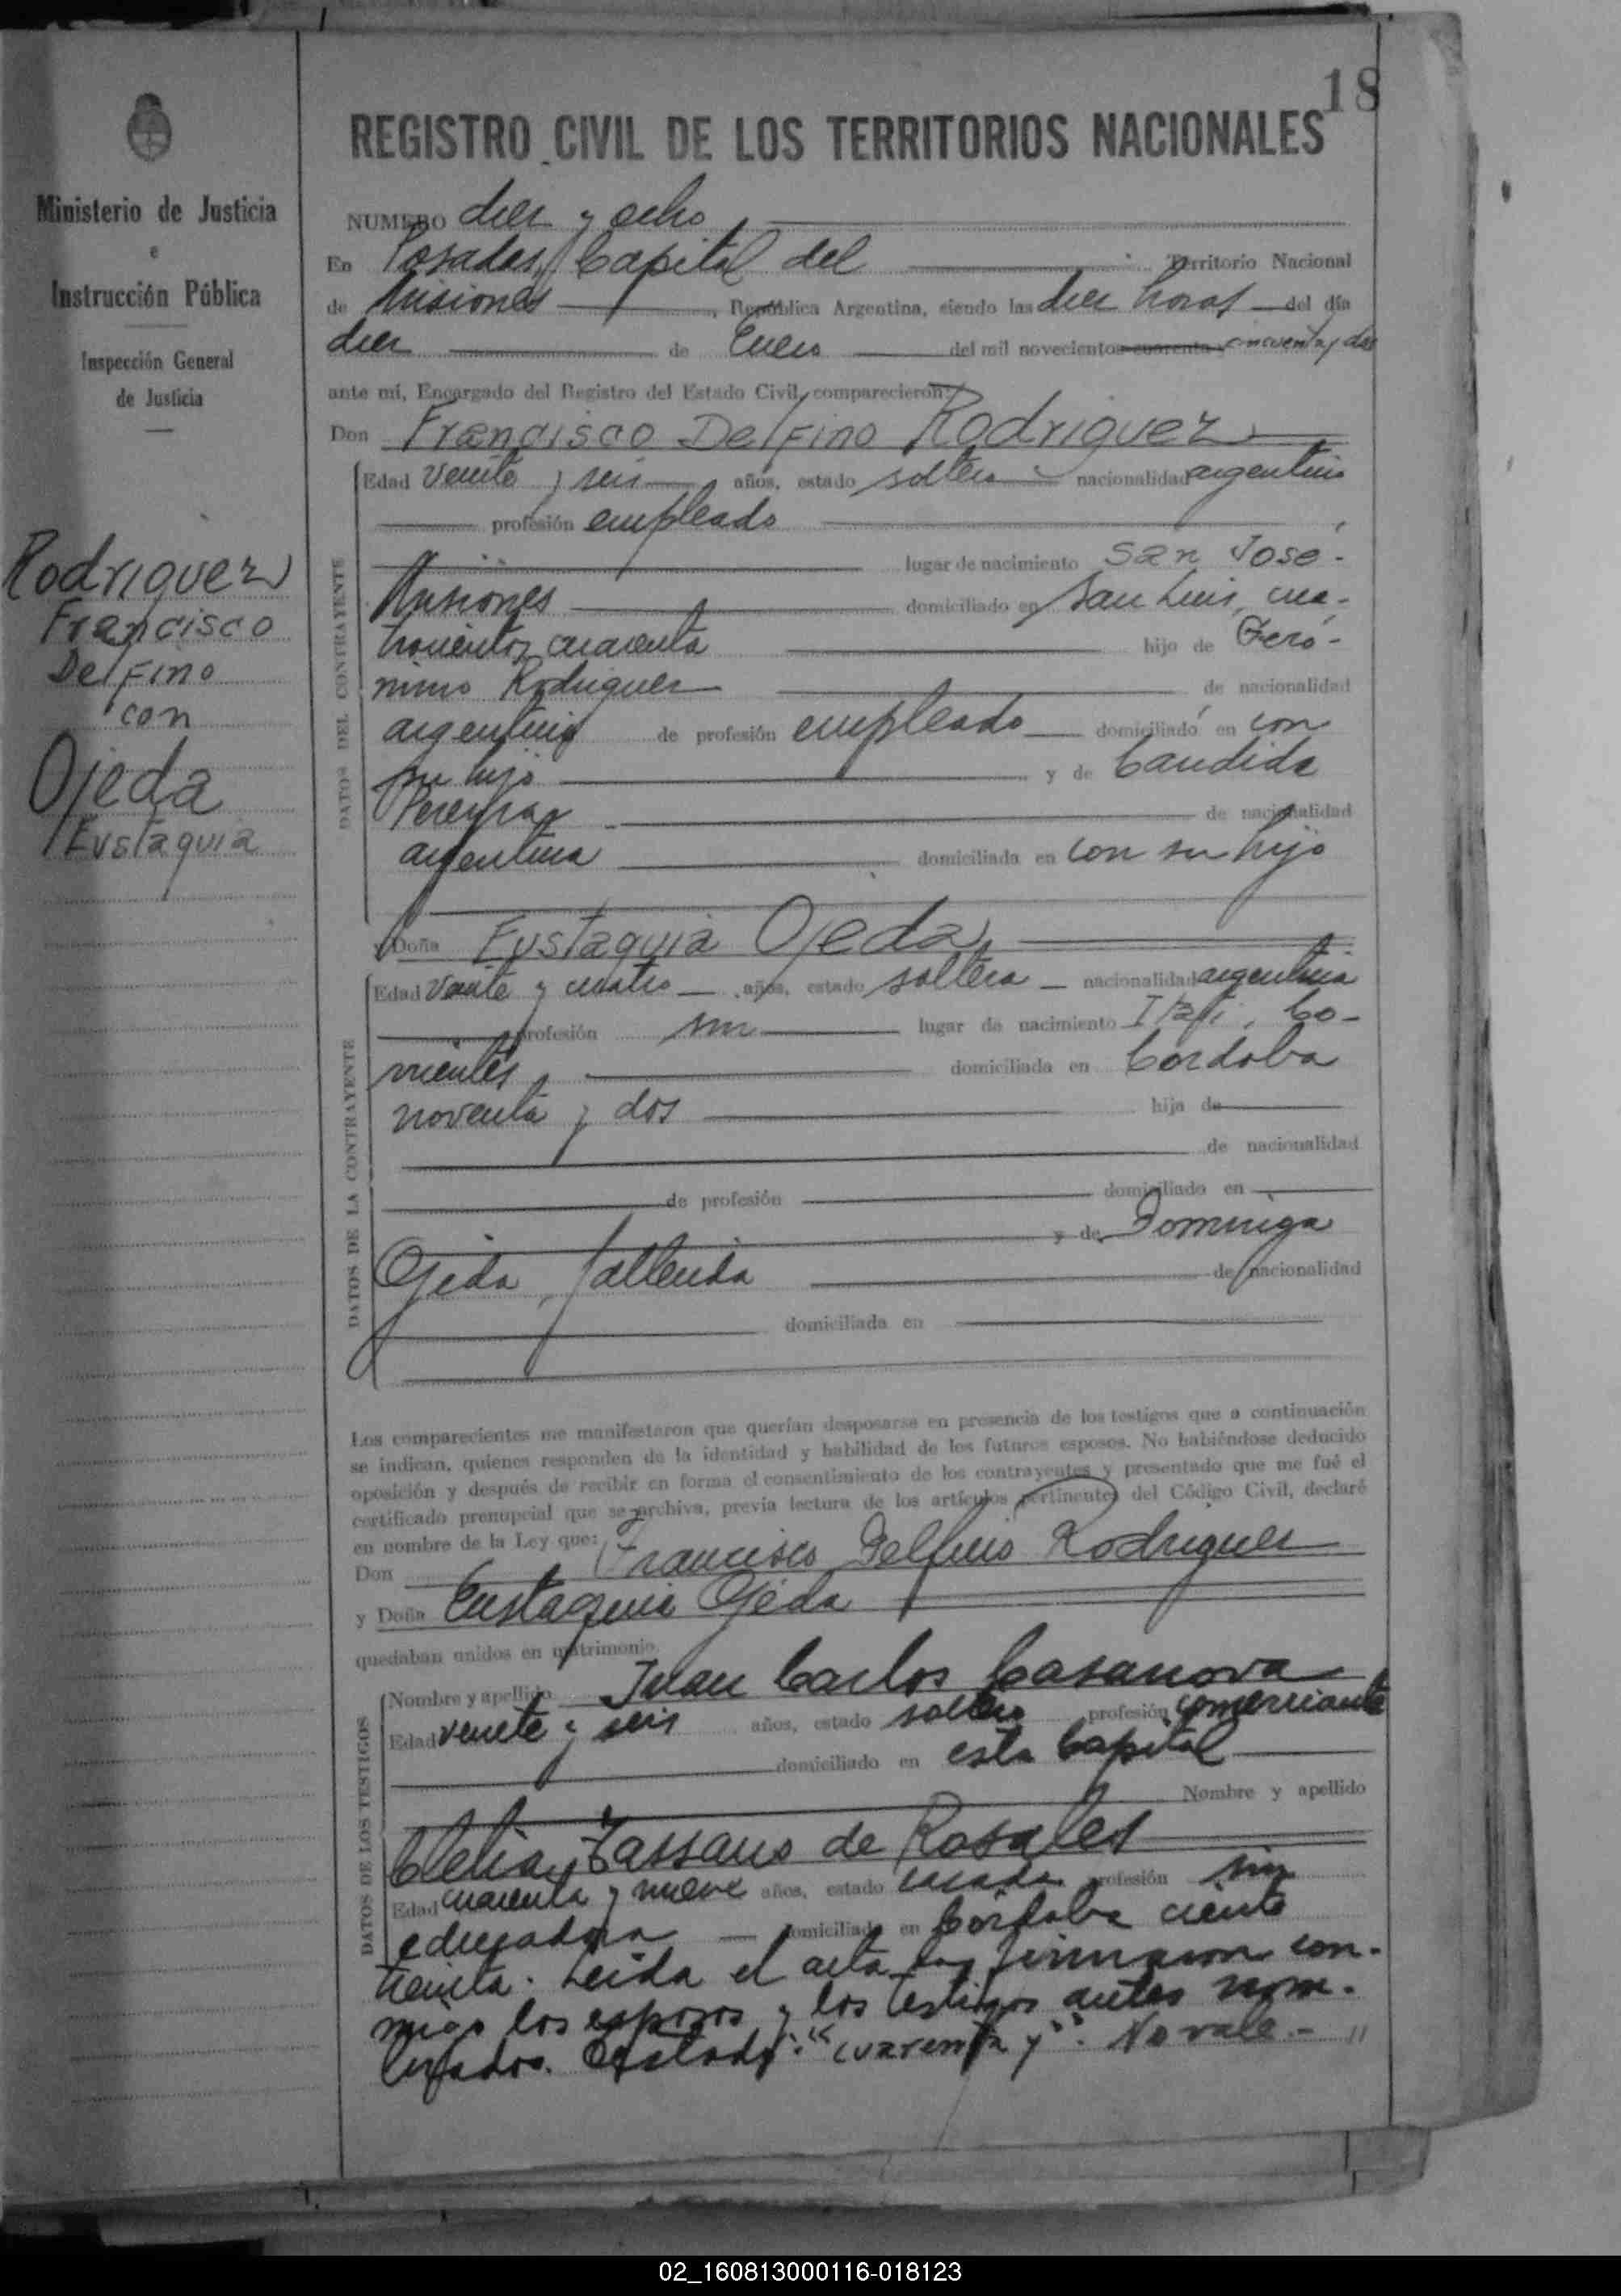 18
Ministerio de Justicia
e
Instrucción Pública
Inspección General
de Justicia
Rodriguez
Francisco
Delfino
con
Ojeda
Eustaquia
REGISTRO CIVIL DE LOS TERRITORIOS NACIONALES
NUMERO diez y ocho
En Posadas, Capital del Territorio Nacional
de Misiones, República Argentina, siendo las diez horas del día
diez de Enero del mil novecientos cuarenta y cincuenta y dos
ante mí, Encargado del Registro del Estado Civil, comparecieron:
Don Francisco Delfino Rodriguez
DATOS DEL CONTRAYENTE
Edad veinte y seis años, estado soltero nacionalidad argentino
profesión empleado
lugar de nacimiento San José-
Misiones domiciliado en San Luis, cua-
trocientos cuarenta hijo de Geró-
nimo Rodriguez de nacionalidad
argentino de profesión empleado domiciliado en con
su hijo y de Candida
Pereyra de nacionalidad
argentina domiciliada en con su hijo
y Doña Eustaquia Ojeda
DATOS DE LA CONTRAYENTE
Edad veinte y cuatro años, estado soltera nacionalidad argentina
profesión sin lugar de nacimiento Itatí, Co-
rrientes domiciliada en Córdoba
noventa y dos hija de
de nacionalidad
de profesión domiciliado en
y de Dominga
Ojeda, fallecida de nacionalidad
domiciliada en
Los comparecientes me manifestaron que querían desposarse en presencia de los testigos que a continuación
se indican, quienes responden de la identidad y habilidad de los futuros esposos. No habiéndose deducido
oposición y después de recibir en forma el consentimiento de los contrayentes y presentado que me fué el
certificado prenupcial que se archiva, previa lectura de los artículos pertinentes del Código Civil, declaré
en nombre de la Ley que:
Don Francisco Delfino Rodriguez
y Doña Eustaquia Ojeda
quedaban unidos en matrimonio.
DATOS DE LOS TESTIGOS
Nombre y apellido Juan Carlos Casanova
Edad veinte y seis años, estado soltero profesión comerciante
domiciliado en esta Capital
Nombre y apellido
Clelia Tassano de Rosales
Edad cuarenta y nueve años, estado casada profesión sin
domiciliada en Córdoba ciento
treinta. Leida el acta la firmaron con-
migo los esposos y los testigos antes nom-
brados. "cuarenta y". No vale.-
02_160813000116-018123